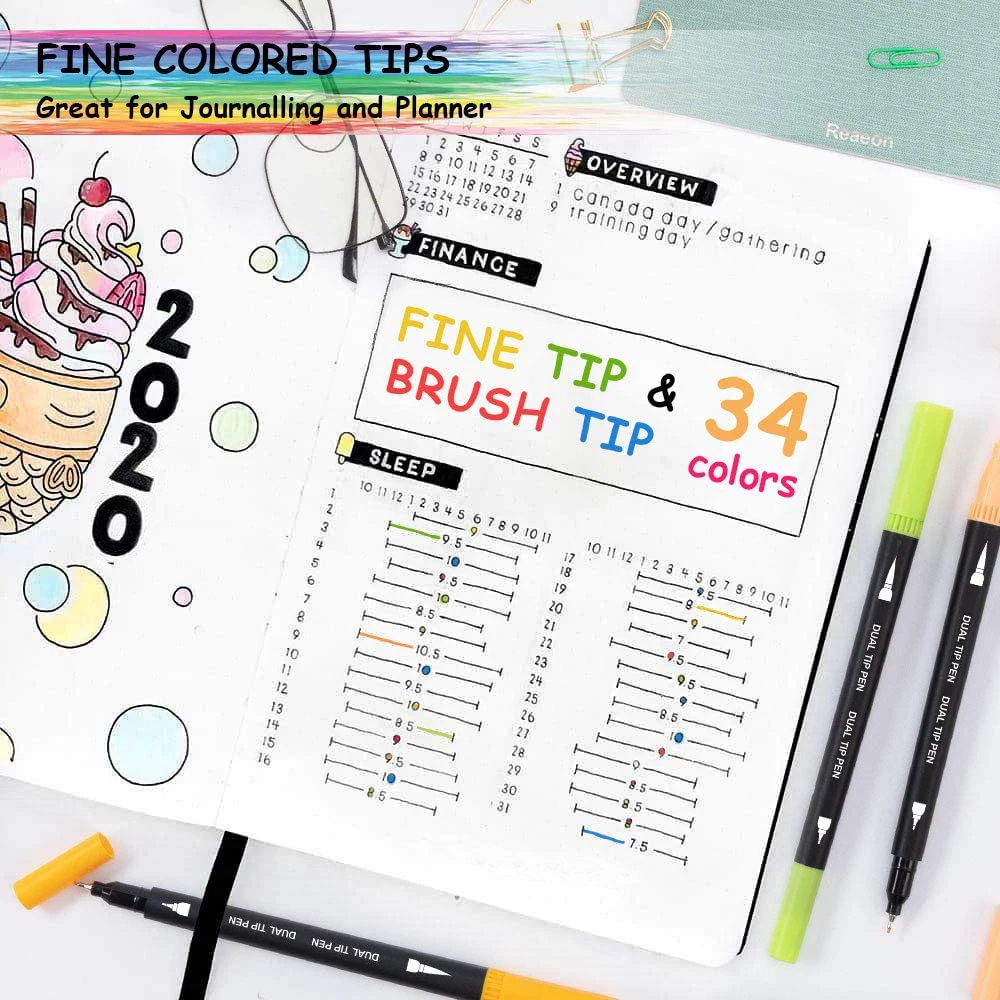 FINE COLORED TIPS
Great for Journalling and Planner
Reaeon
T F S S
1 2 3 4 5 6 7
8 9 10 11 12 13 14
15 16 17 18 19 20 21
22 23 24 25 26 27 28
29 30 31
OVERVIEW
1 Canada day/gathering
9 training day
FINANCE
FINE TIP &
BRUSH TIP
34
colors
2020
SLEEP
10 11 12 1 2 3 4 5 6 7 8 9 10 11
1
2
3 9.5
4 10
5 9.5
6 10
7 8.5
8 9
9 10.5
10 10
11 9.5
12 10
13 8.5
14 9
15 9.5
16 10
8.5
10 11 12 1 2 3 4 5 6 7 8 9 10 11
17 9.5
18 8
19 9
20 7
21
22
23
24
25 8.5
26 10
27 9
28 9
29 8.5
30 8.5
31 8
7.5
DUAL TIP PEN DUAL TIP PEN
DUAL TIP PEN DUAL TIP PEN
DUAL TIP PEN DUAL TIP PEN